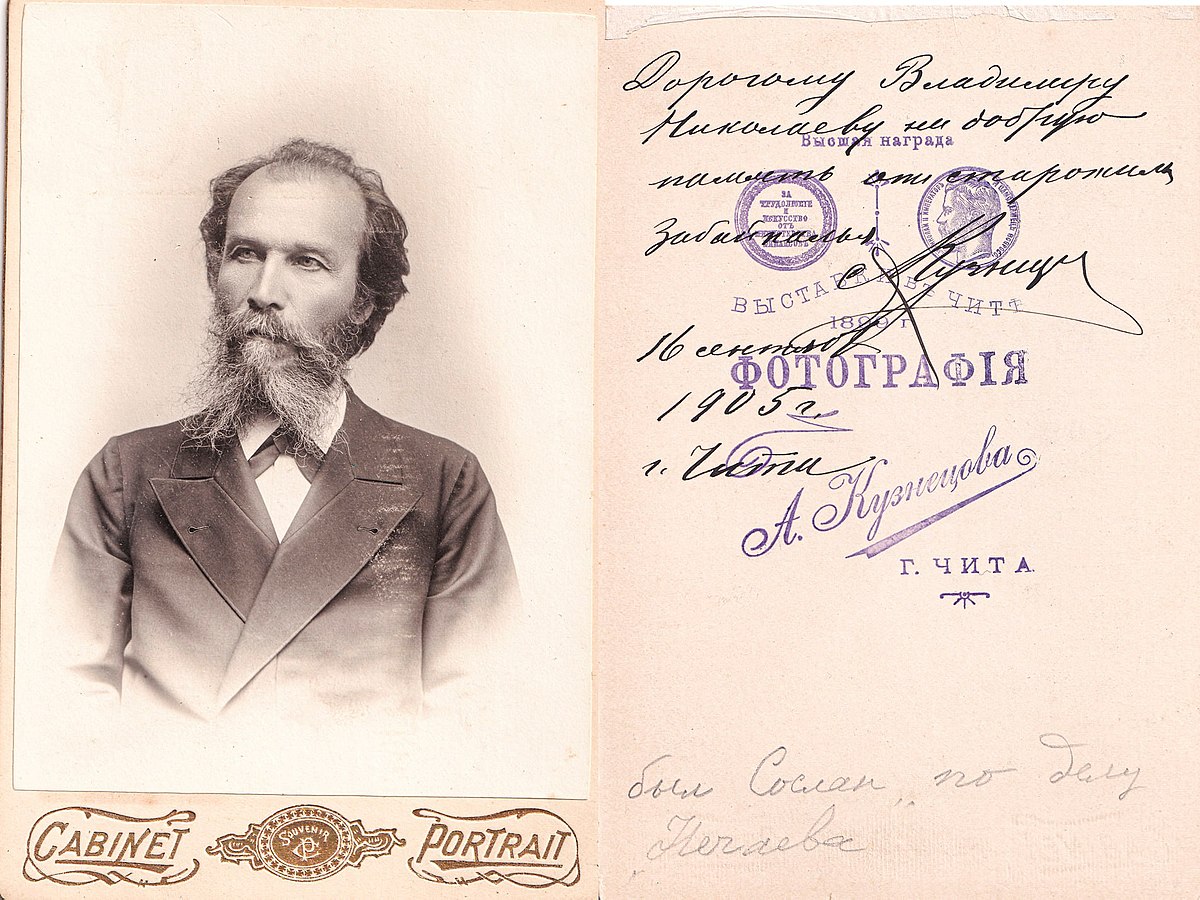 CABINET
SOUVENIR
CP
PORTRAIT
Дорогому Владимиру
Николаеву на добрую
память от старожила
Забайкалья
16 сентября
1905 г.
г. Чита
Высшая награда
ЗА
ТРУДОЛЮБІЕ
И
ИСКУССТВО
ВЫСТАВКА ВЪ ЧИТѢ
1899 г.
ФОТОГРАФІЯ
А. Кузнецова
Г. ЧИТА
был Сослан по делу
Нечаева